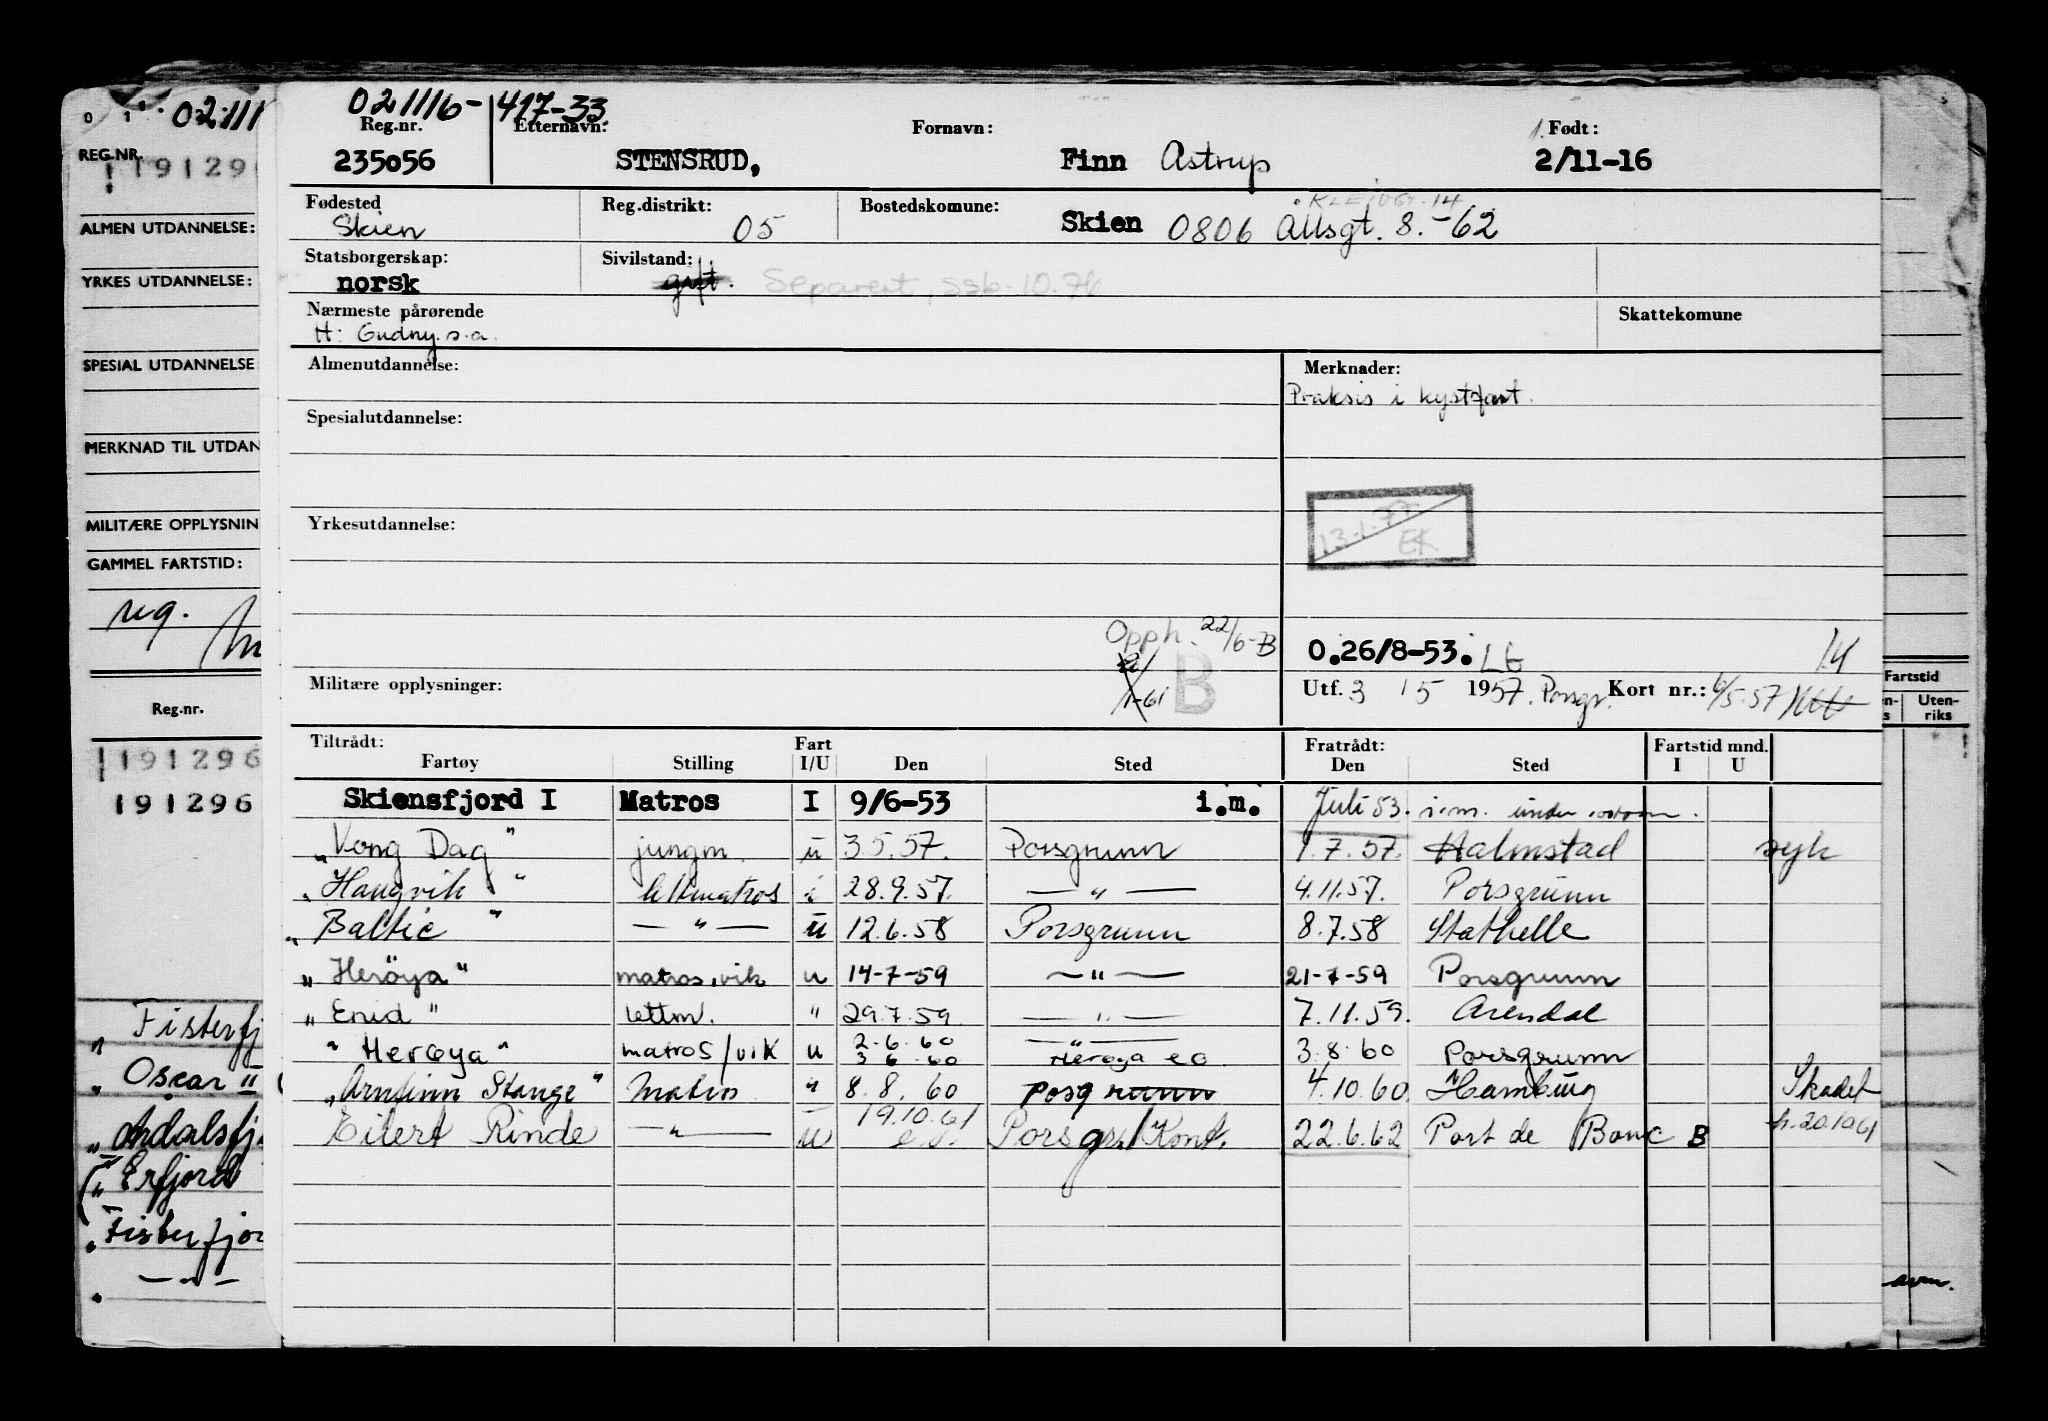 021116-417-33
Reg.nr. Etternavn: Fornavn: Født:
235056 STENSRUD, Finn Astrup 2/11-16
Fødested Reg.distrikt: Bostedskomune:
Skien 05 Skien 0806 Allsgt. 8.-62
Statsborgerskap: Sivilstand:
norsk gift. Separert, ssb. 10.76
Nærmeste pårørende Skattekomune
H: Gudny. s.a.
Almenutdannelse: Merknader:
Praksis i kystfart.
Spesialutdannelse:
Yrkesutdannelse:
13-1.77 EK
Opph. 22/6-B
B
O.26/8-53. 14
Militære opplysninger: Utf. 3 / 5 1957. Porsgr. Kort nr.: 6/5.57
Tiltrådt: Fart Fratrådt: Fartstid mnd.
Fartøy Stilling I/U Den Sted Den Sted I U
Skiensfjord I Matros I 9/6-53 i.m. Juli 53. i.m. under
"Kong Dag" jungm. u 3.5.57. Porsgrunn 1.7.57. Halmstad syk
"Haugvik" lettmatros i 28.9.57. — " — 4.11.57. Porsgrunn
"Baltic" — " — u 12.6.58 Porsgrunn 8.7.58 Stathelle
"Herøya" matros.vik u 14-7-59 — " — 21-7-59 Porsgrunn
"Enid" lettm. " 29.7.59 — " — 7.11.59. Arendal
"Herøya" matros/vik u 2-6-60 — " — 3.8.60 Porsgrunn
3 6 60 Herøya eo
"Arnfinn Stange" Matros " 8.8.60 Posgrunn 4.10.60 Hamburg Skadet
19.10.61
Eilert Rinde — " — u Porsgr/Kont. 22.6.62 Port de Bouc B h.20.1961
02.111
REG.NR.
191296
ALMEN UTDANNELSE:
YRKES UTDANNELSE:
SPESIAL UTDANNELSE
MERKNAD TIL UTDAN
MILITÆRE OPPLYSNIN
GAMMEL FARTSTID:
Reg.nr.
191296
191296
"Fisterfj
"Oscar II
"Årdalsfj
("Erfjord
"Fisterfjor
" — " —
Fartstid
Uten-
riks